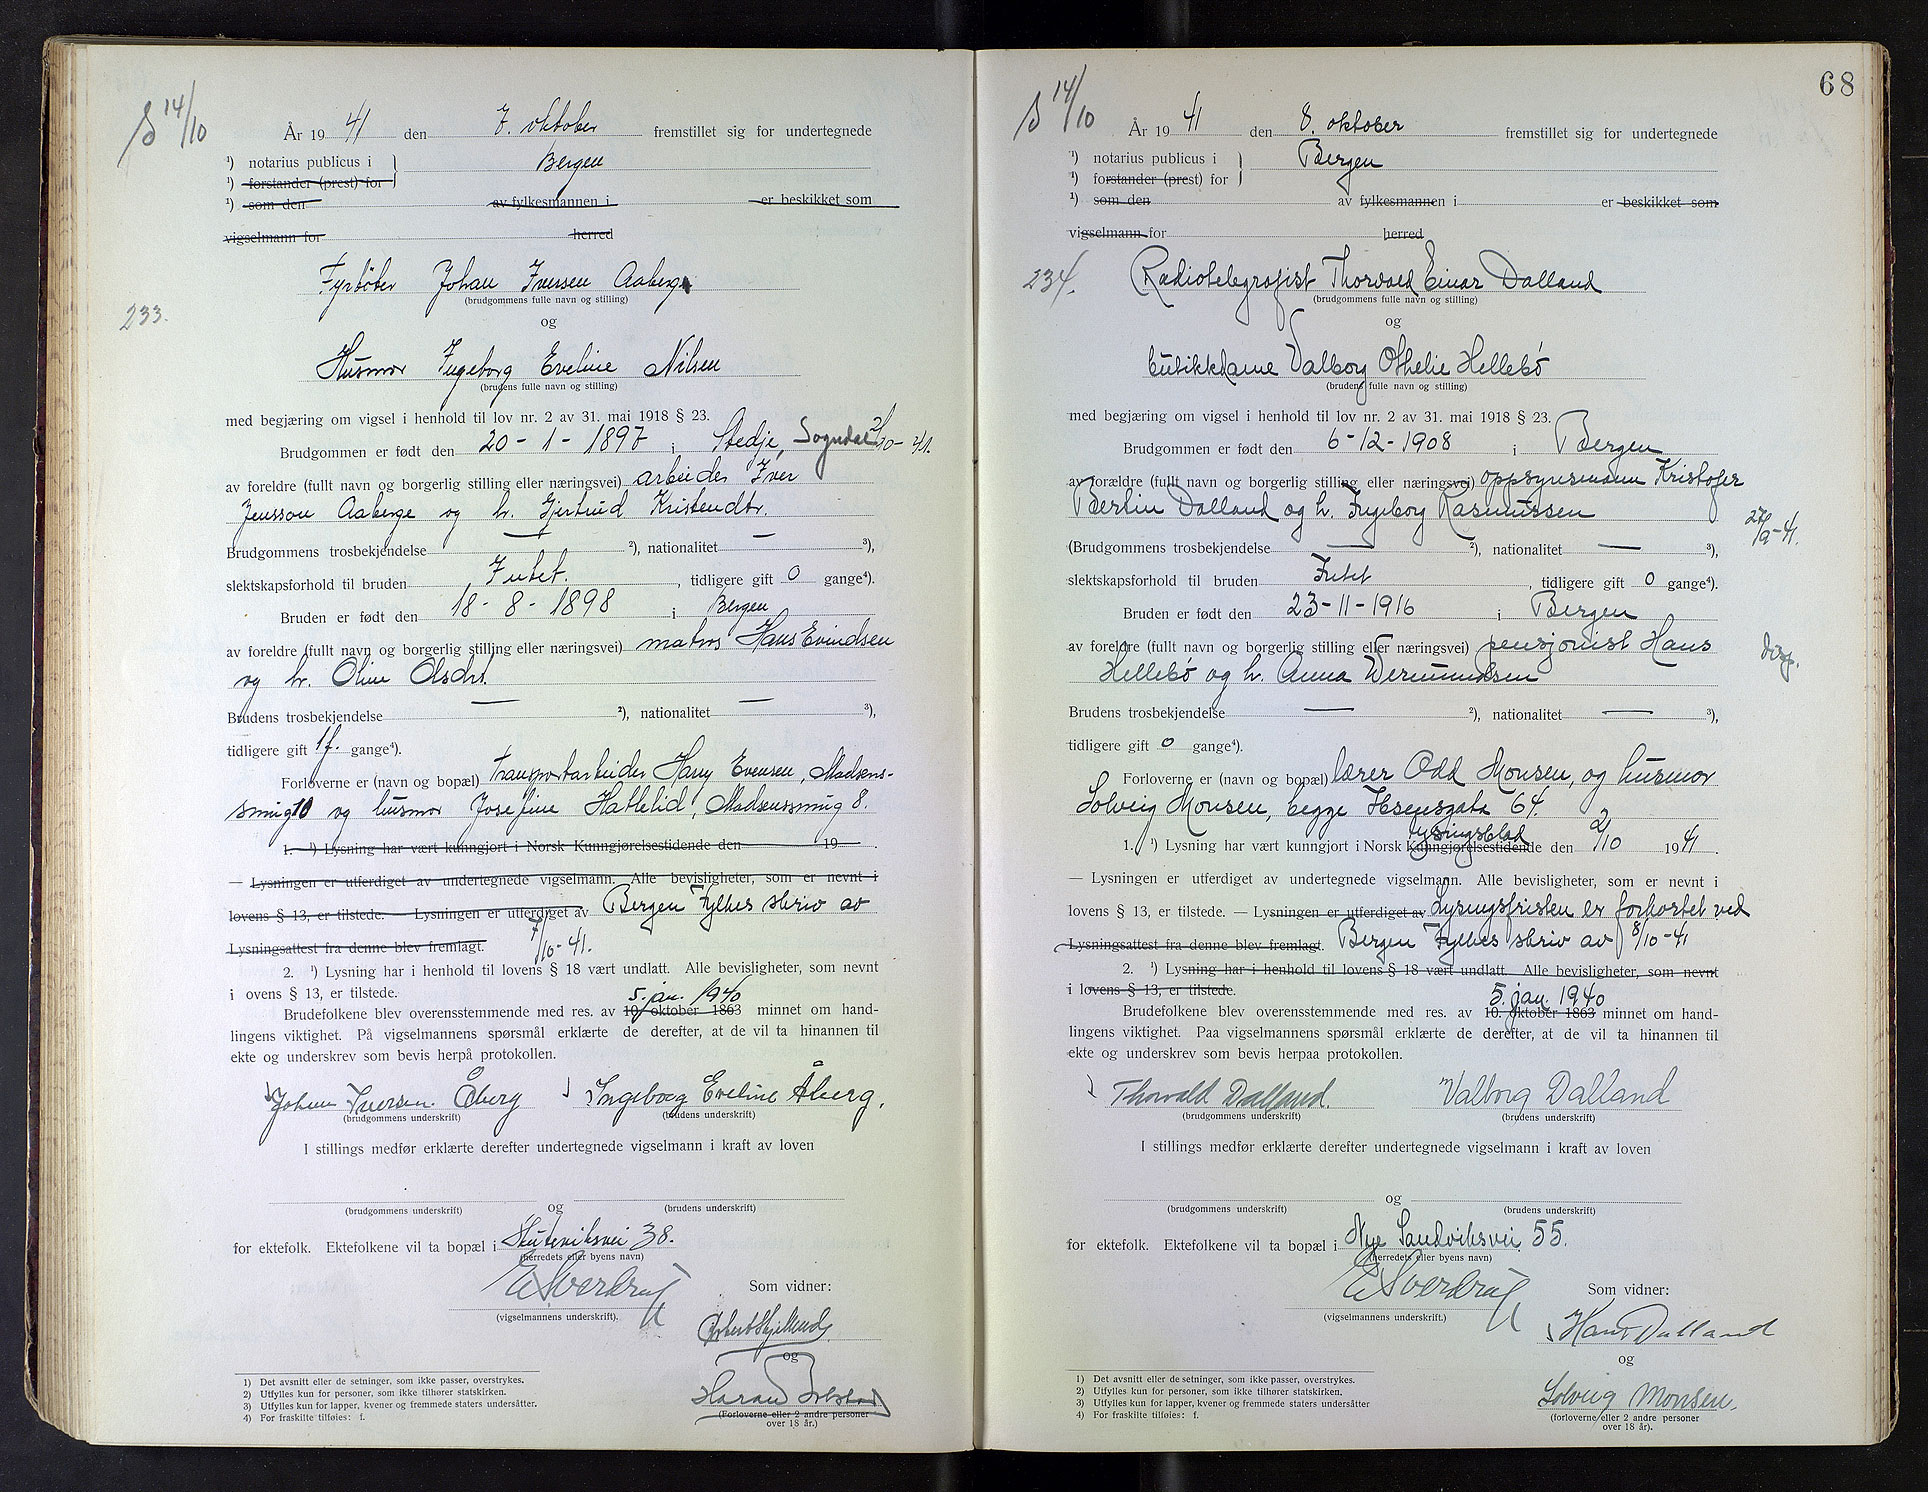 S 14/10
År 1941 den 7. oktober fremstillet sig for undertegnede
¹) notarius publicus i Bergen
¹) forstander (prest) for
¹) som den av fylkesmannen i er beskikket som
vigselmann for herred
Fyrbøter Johan Iversen Aaberge
(brudgommens fulle navn og stilling)
233.
og
Husmor Ingeborg Eveline Nilsen
(brudens fulle navn og stilling)
med begjæring om vigsel i henhold til lov nr. 2 av 31. mai 1918 § 23.
Brudgommen er født den 20-1-1897 i Stedje, Sogndal 2/10-41.
av foreldre (fullt navn og borgerlig stilling eller næringsvei) arbeider Iver
Jensson Aaberge og h. Gjertrud Kristendtr.
Brudgommens trosbekjendelse — ²), nationalitet — ³),
slektskapsforhold til bruden Intet. , tidligere gift 0 gange⁴).
Bruden er født den 18-8-1898 i Bergen
av foreldre (fullt navn og borgerlig stilling eller næringsvei) matros Hans Evindsen
og h. Oline Olsdtr.
Brudens trosbekjendelse — ²), nationalitet — ³),
tidligere gift 1 f. gange⁴).
Forloverne er (navn og bopæl) transportarbeider Harry Evensen, Madsens-
smug 10 og husmor Josefine Hattelid, Madsenssmug 8.
1. ¹) Lysning har vært kunngjort i Norsk Kunngjørelsestidende den 19 .
— Lysningen er utferdiget av undertegnede vigselmann. Alle bevisligheter, som er nevnt i
lovens § 13, er tilstede. — Lysningen er utferdiget av Bergen Fylkes skriv av
Lysningsattest fra denne blev fremlagt. 7/10-41.
2. ¹) Lysning har i henhold til lovens § 18 vært undlatt. Alle bevisligheter, som nevnt
i ovens § 13, er tilstede.
5. jan. 1940
Brudefolkene blev overensstemmende med res. av 10. oktober 1863 minnet om hand-
lingens viktighet. På vigselmannens spørsmål erklærte de derefter, at de vil ta hinannen til
ekte og underskrev som bevis herpå protokollen.
Johan Iversen Åberg Ingeborg Eveline Åberg.
(brudgommens underskrift) (brudens underskrift)
I stillings medfør erklærte derefter undertegnede vigselmann i kraft av loven
og
(brudgommens underskrift) (brudens underskrift)
for ektefolk. Ektefolkene vil ta bopæl i Skuteviksvei 38.
(herredets eller byens navn)
E Sverdrup Som vidner:
(vigselmannens underskrift).
og
(Forloverne eller 2 andre personer
over 18 år.)
1) Det avsnitt eller de setninger, som ikke passer, overstrykes.
2) Utfylles kun for personer, som ikke tilhører statskirken.
3) Utfylles kun for lapper, kvener og fremmede staters undersåtter.
4) For fraskilte tilføies: f.
68
S 14/10
År 1941 den 8. oktober fremstillet sig for undertegnede
¹) notarius publicus i Bergen
¹) forstander (prest) for
¹) som den av fylkesmannen i er beskikket som
vigselmann for herred
234.
Radiotelegrafist Thorvald Einar Dalland
(brudgommens fulle navn og stilling)
og
butikkdame Valborg Othelie Hellebø
(brudens fulle navn og stilling)
med begjæring om vigsel i henhold til lov nr. 2 av 31. mai 1918 § 23.
Brudgommen er født den 6-12-1908 i Bergen
av forældre (fullt navn og borgerlig stilling eller næringsvei) oppsynsmann Kristofer
Bertin Dalland og h. Ingeborg Rasmussen
27/9-41.
(Brudgommens trosbekjendelse — ²), nationalitet — ³),
slektskapsforhold til bruden Intet , tidligere gift 0 gange⁴).
Bruden er født den 23-11-1916 i Bergen
av foreldre (fullt navn og borgerlig stilling eller næringsvei) pensjonist Hans
Hellebø og h. Anna Wermundsen
Brudens trosbekjendelse — ²), nationalitet — ³),
tidligere gift 0 gange⁴).
Forloverne er (navn og bopæl) lærer Odd Monsen, og husmor
Solveig Monsen, begge Ibsensgata 64.
lysningsblad
1. ¹) Lysning har vært kunngjort i Norsk Kunngjørelsestidende den 2/10 1941.
— Lysningen er utferdiget av undertegnede vigselmann. Alle bevisligheter, som er nevnt i
lovens § 13, er tilstede. — Lysningen er utferdiget av Lysningsfristen er forkortet ved
Lysningsattest fra denne blev fremlagt. Bergen Fylkes skriv av 8/10-41
2. ¹) Lysning har i henhold til lovens § 18 vært undlatt. Alle bevisligheter, som nevnt
i lovens § 13, er tilstede.
5. jan. 1940
Brudefolkene blev overensstemmende med res. av 10. oktober 1863 minnet om hand-
lingens viktighet. Paa vigselmannens spørsmål erklærte de derefter, at de vil ta hinannen til
ekte og underskrev som bevis herpaa protokollen.
Thorvald Dalland. Valborg Dalland
(brudgommens underskrift) (brudens underskrift)
I stillings medfør erklærte derefter undertegnede vigselmann i kraft av loven
og
(brudgommens underskrift) (brudens underskrift)
for ektefolk. Ektefolkene vil ta bopæl i Nye Sandviksvei 55.
(herredets eller byens navn)
E Sverdrup Som vidner:
(vigselmannens underskrift.)
Hans Dalland
og
Solveig Monsen.
(forloverne eller 2 andre personer
over 18 år).
1) Det avsnitt eller de setninger, som ikke passer, overstrykes.
2) Utfylles kun for personer, som ikke tilhører statskirken.
3) Utfylles kun for lapper, kvener og fremmede staters undersåtter
4) For fraskilte tilføies: f.